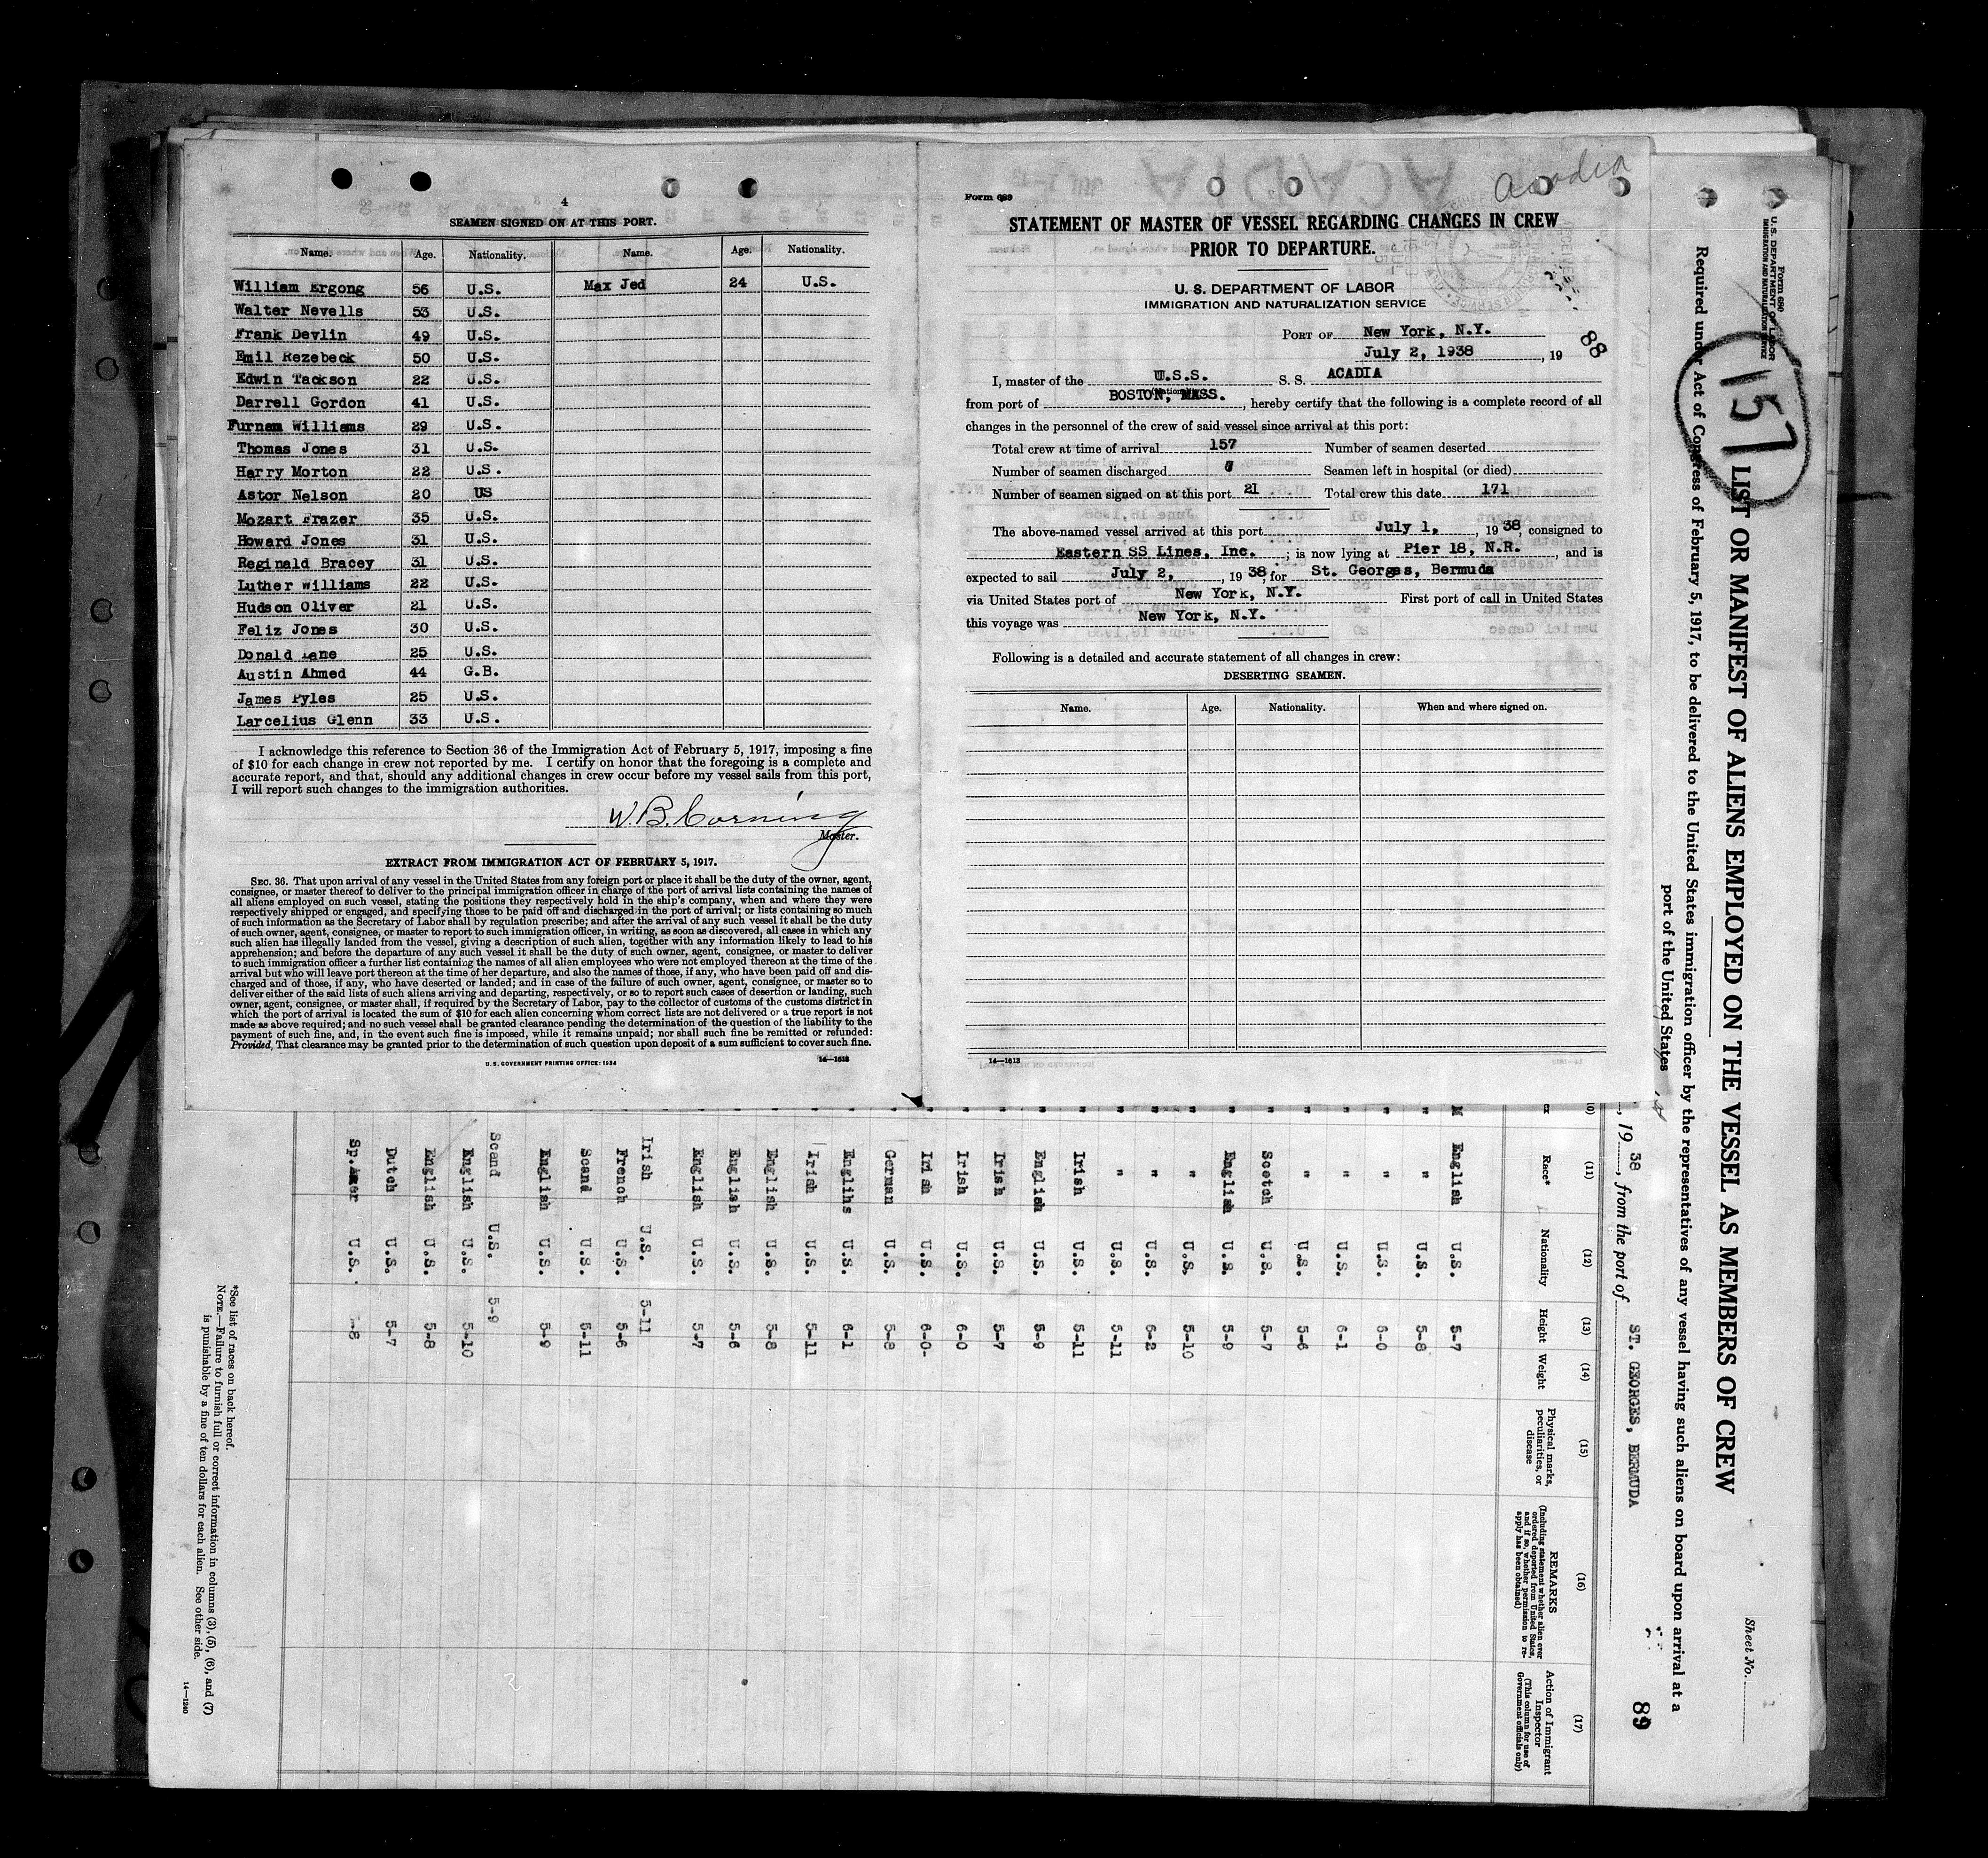 4
SEAMEN SIGNED ON AT THIS PORT.
Name. Age. Nationality. Name. Age. Nationality.
William Ergong 56 U.S. Max Jed 24 U.S.
Walter Nevells 53 U.S.
Frank Devlin 49 U.S.
Emil Rezebeck 50 U.S.
Edwin Tackson 22 U.S.
Darrell Gordon 41 U.S.
Furnam Williams 29 U.S.
Thomas Jones 31 U.S.
Harry Morton 22 U.S.
Astor Nelson 20 US
Mozart Frazer 35 U.S.
Howard Jones 31 U.S.
Reginald Bracey 31 U.S.
Luther williams 22 U.S.
Hudson Oliver 21 U.S.
Feliz Jones 30 U.S.
Donald Lane 25 U.S.
Austin Ahmed 44 G.B.
James Pyles 25 U.S.
Larcelius Glenn 33 U.S.
I acknowledge this reference to Section 36 of the Immigration Act of February 5, 1917, imposing a fine
of $10 for each change in crew not reported by me. I certify on honor that the foregoing is a complete and
accurate report, and that, should any additional changes in crew occur before my vessel sails from this port,
I will report such changes to the immigration authorities.
W. B. Corning
Master.
EXTRACT FROM IMMIGRATION ACT OF FEBRUARY 5, 1917.
SEC. 36. That upon arrival of any vessel in the United States from any foreign port or place it shall be the duty of the owner, agent,
consignee, or master thereof to deliver to the principal immigration officer in charge of the port of arrival lists containing the names of
all aliens employed on such vessel, stating the positions they respectively hold in the ship's company, when and where they were
respectively shipped or engaged, and specifying those to be paid off and discharged in the port of arrival; or lists containing so much
of such information as the Secretary of Labor shall by regulation prescribe; and after the arrival of any such vessel it shall be the duty
of such owner, agent, consignee, or master to report to such immigration officer, in writing, as soon as discovered, all cases in which any
such alien has illegally landed from the vessel, giving a description of such alien, together with any information likely to lead to his
apprehension; and before the departure of any such vessel it shall be the duty of such owner, agent, consignee, or master to deliver
to such immigration officer a further list containing the names of all alien employees who were not employed thereon at the time of the
arrival but who will leave port thereon at the time of her departure, and also the names of those, if any, who have been paid off and dis-
charged and of those, if any, who have deserted or landed; and in case of the failure of such owner, agent, consignee, or master so to
deliver either of the said lists of such aliens arriving and departing, respectively, or so to report such cases of desertion or landing, such
owner, agent, consignee, or master shall, if required by the Secretary of Labor, pay to the collector of customs of the customs district in
which the port of arrival is located the sum of $10 for each alien concerning whom correct lists are not delivered or a true report is not
made as above required; and no such vessel shall be granted clearance pending the determination of the question of the liability to the
payment of such fine, and, in the event such fine is imposed, while it remains unpaid; nor shall such fine be remitted or refunded:
Provided, That clearance may be granted prior to the determination of such question upon deposit of a sum sufficient to cover such fine.
U.S. GOVERNMENT PRINTING OFFICE: 1934 14—1613
Form 689
Acadia
STATEMENT OF MASTER OF VESSEL REGARDING CHANGES IN CREW
PRIOR TO DEPARTURE.
U. S. DEPARTMENT OF LABOR
IMMIGRATION AND NATURALIZATION SERVICE
PORT OF New York, N.Y.
July 2, 1938, 19
88
I, master of the U.S.S. S. S. ACADIA
(Nationality)
from port of BOSTON, MASS., hereby certify that the following is a complete record of all
changes in the personnel of the crew of said vessel since arrival at this port:
Total crew at time of arrival 157 Number of seamen deserted
Number of seamen discharged 7 Seamen left in hospital (or died)
Number of seamen signed on at this port 21 Total crew this date 171
The above-named vessel arrived at this port July 1, , 19 38, consigned to
Eastern SS Lines, Inc. ; is now lying at Pier 18, N.R. , and is
expected to sail July 2, , 19 38, for St. Georges, Bermuda
via United States port of New York, N.Y. First port of call in United States
this voyage was New York, N.Y.
Following is a detailed and accurate statement of all changes in crew:
DESERTING SEAMEN.
Name. Age. Nationality. When and where signed on.
14—1613
Form 680
U.S. DEPARTMENT OF LABOR
IMMIGRATION AND NATURALIZATION SERVICE
157
Sheet No.
LIST OR MANIFEST OF ALIENS EMPLOYED ON THE VESSEL AS MEMBERS OF CREW
Required under Act of Congress of February 5, 1917, to be delivered to the United States immigration officer by the representatives of any vessel having such aliens on board upon arrival at a
port of the United States
, 19 38, from the port of ST. GEORGES, BERMUDA
89
(11) (12) (13) (14) (15) (16) (17)
Race* Nationality Height Weight Physical marks, peculiarities, or disease REMARKS (Including statement whether alien ever ordered deported from United States, and if so, whether permission to re-apply has been obtained) Action of Immigrant Inspector (This column for use of Government officials only)
M English U.S. 5-7
" " U.S. 5-8
" " U.S. 6-0
" " U.S. 6-1
" " U.S. 5-6
" Scotch U.S. 5-7
" English U.S. 5-9
" " U.S. 5-10
" " U.S. 6-2
" " U.S. 5-11
" Irish U.S. 5-11
" English U.S. 5-9
" Irish U.S. 5-7
" Irish U.S. 6-0
" Irish U.S. 6-0-
" German U.S. 5-8
" Englihs U.S. 6-1
" Irish U.S. 5-11
" English U.S. 5-8
" English U.S. 5-6
" English U.S. 5-7
Irish U.S. 5-11
French U.S. 5-6
Scand U.S. 5-11
English U.S. 5-9
Scand U.S. 5-9
English U.S. 5-10
English U.S. 5-8
Dutch U.S. 5-7
Sp.Amer U.S. -8
*See list of races on back hereof.
NOTE.—Failure to furnish full or correct information in columns (3), (5), (6), and (7)
is punishable by a fine of ten dollars for each alien. See other side.
14—1240